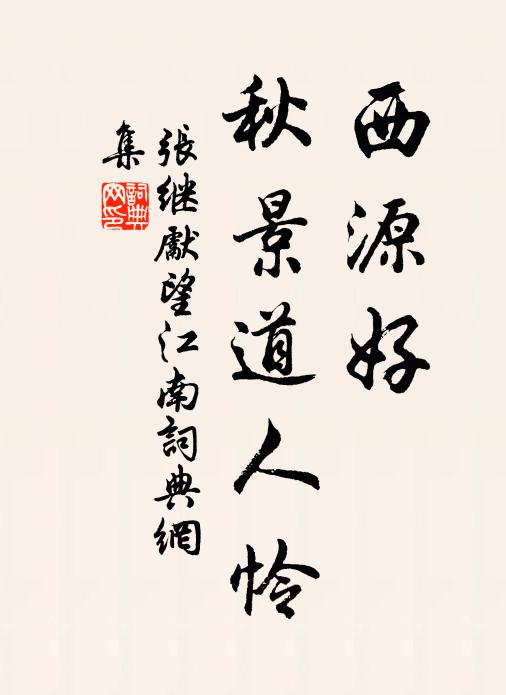 西源好
秋景道人怜
張继獻望江南詞典網
集
詞典网印